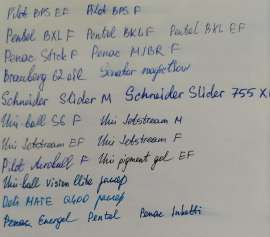 Pilot BPS EF Pilot BPS F
Pentel BXL F Pentel BKL F Pentel BXL EF
Penac Stick F Penac M/BR F
Brauberg oil Senator
Schneider Slider M Schneider Slider 755 X
Uni-ball SG F Uni Jetstream M
Uni Jetstream EF Uni Jetstream F
Pilot Acroball F Uni pigment gel EF
Uni-ball vision Elite
Deli MATE Q400
Penac Energel Pentel Penac